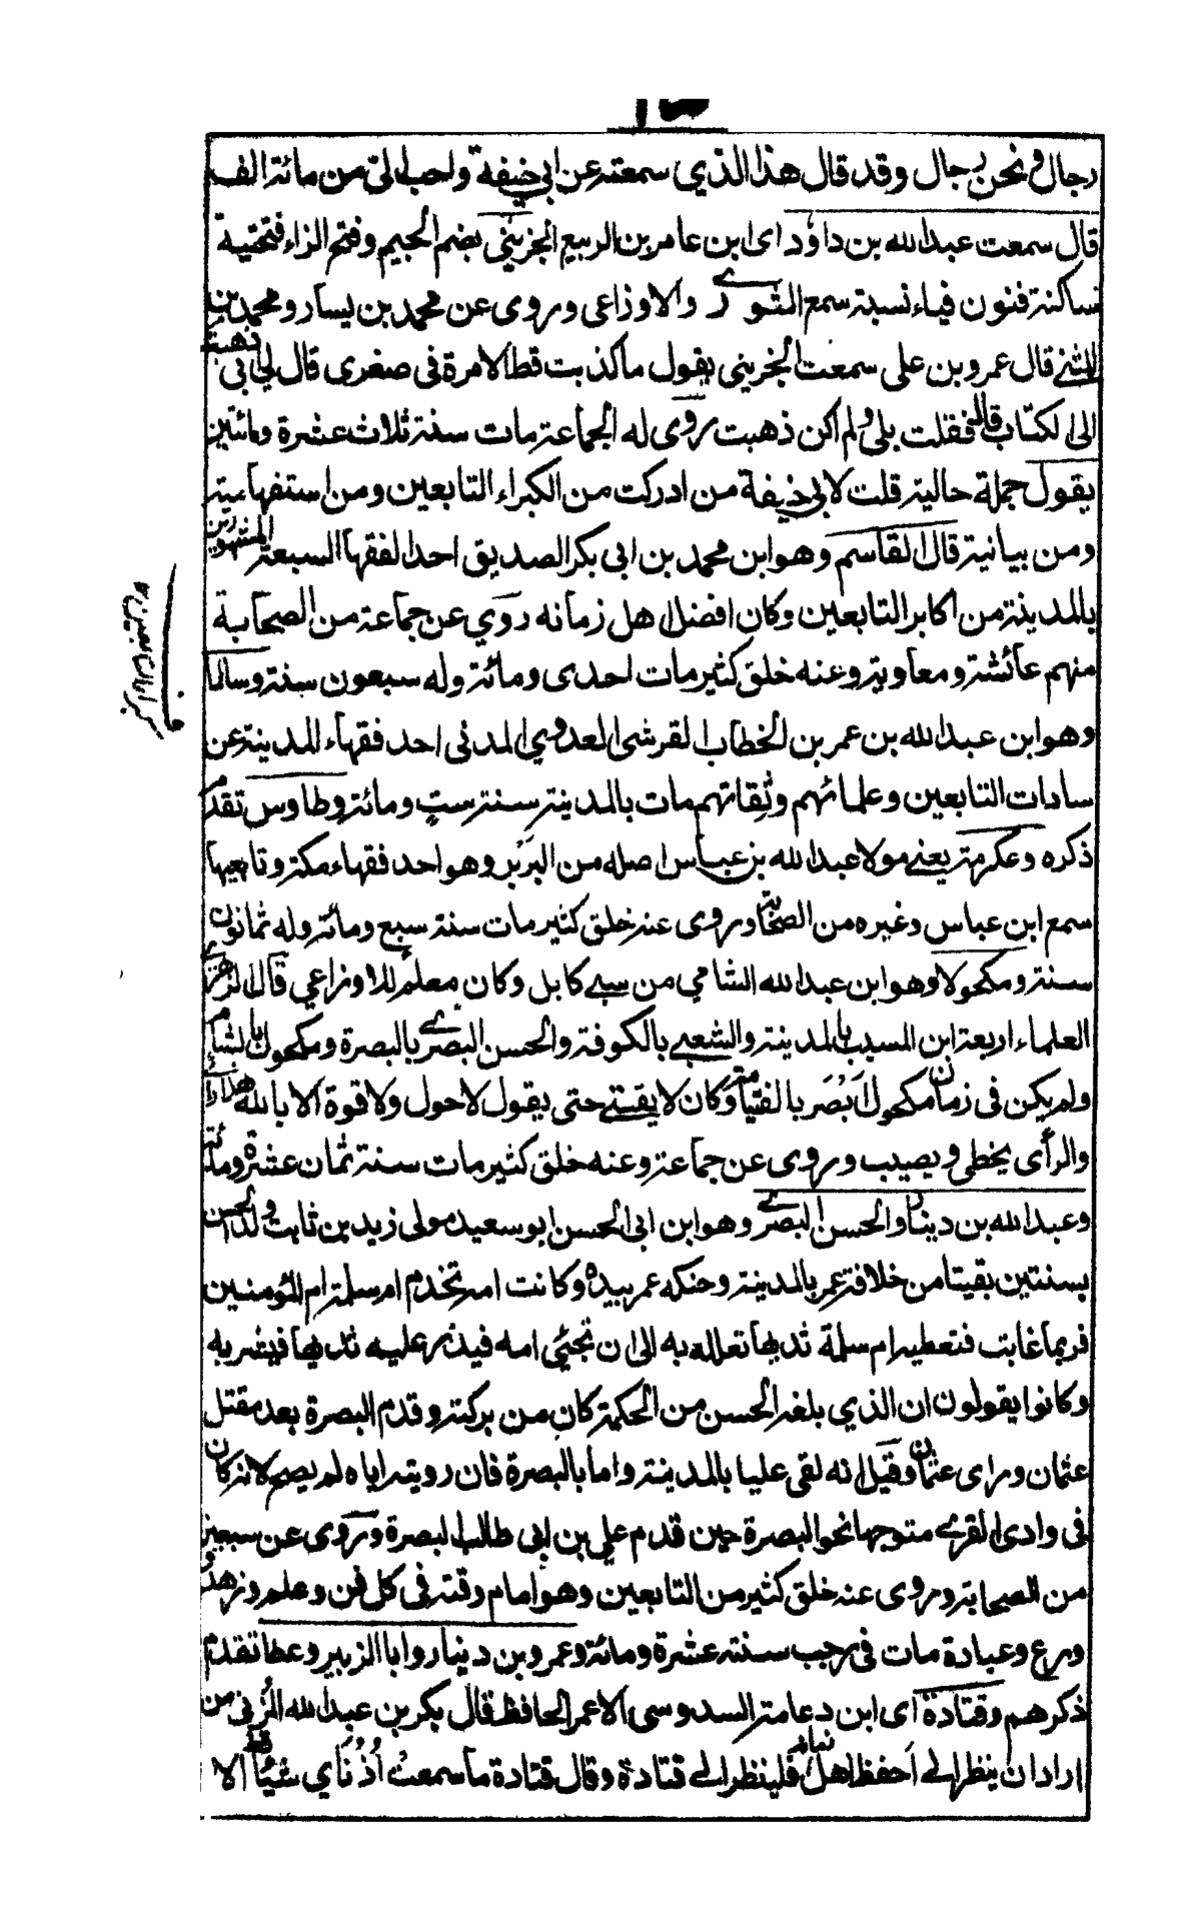 رجال ونحن رجال وقد قال هذا الذي سمعته عن ابي حنيفة ولحب الىّ من مائة الف
قال سمعت عبدالله بن داؤد اى ابن عامر بن الربيع الجزيني بضم الجيم وفتح الزاء فتحتية
ساكنة فنون فياء نسبة سمع الثورى والاوزاعى وروى عن محمد بن يسار ومحمد بن
المثنى قال عمرو بن على سمعت الخرينى يقول ما كذبت قط الا مرة فى صغرى قال لى ابى ذهبت
الى الكتاب قال فقلت بلى ولم اكن ذهبت روى له الجماعة مات سنة ثلاث عشرة ومائتين
يقول جملة حالية قلت لابي حنيفة من ادركت من الكبراء التابعين ومن استفهامية
ومن بيانية قال القاسم وهو ابن محمد بن ابى بكر الصديق احد الفقهاء السبعة المشهورين
بالمدينة من اكابر التابعين وكان افضل اهل زمانه روي عن جماعة من الصحابة
منهم عائشة ومعاوية وعنه خلق كثير مات احدى ومائة وله سبعون سنة وسالما
وهو ابن عبدالله بن عمر بن الخطاب القرشى العدوي المدنى احد فقهاء المدينة عن
سادات التابعين وعلمائهم وثقاتهم مات بالمدينة سنة ست ومائة وطاوس تقدم
ذكره وعكرمة يعنى مولا عبدالله بن عباس اصله من البربر وهو احد فقهاء مكة وتابعيها
سمع ابن عباس وغيره من الصحابة وروى عنه خلق كثير مات سنة سبع ومائة وله ثمانون
سنة ومكحولا وهو ابن عبدالله الشامي من سبى كابل وكان معلم للاوزاعي قال الزهرى
العلماء اربعة ابن المسيب بالمدينة والشعبى بالكوفة والحسن البصرى بالبصرة ومكحول بالشام
ولم يكن فى زمان مكحول اَبْصَر بالفتيا منه وكان لا يفتى حتى يقول لا حول ولا قوة الا بالله هذا رأى
والرأى يخطى ويصيب وروى عن جماعة وعنه خلق كثير مات سنة ثمان عشرة ومائة
وعبدالله بن دينار والحسن البصرى وهو ابن ابى الحسن ابو سعيد مولى زيد بن ثابت ولد الحسن
بسنتين بقيتا من خلافة عمر بالمدينة وحنكه عمر بيده وكانت امه تخدم ام سلمة ام المؤمنين
فربما غابت فتعطيه ام سلمة ثديها تعلله به الى ان تجئي امه فيذر عليه ثديها فيشربه
وكانوا يقولون ان الذي بلغه الحسن من الحكمة كان من بركته وقدم البصرة بعد مقتل
عثمان وراى عثمان وقيل انه لقى عليا بالمدينة واما بالبصرة فان رويته اياه لم يصح لانه كان
فى وادى القرى متوجها نحو البصرة حين قدم علي بن ابى طالب البصرة وروى عن سبعين
من الصحابة وروى عنه خلق كثير من التابعين وهو امام وقته فى كل فن وعلم وزهد و
ورع وعبادة مات فى رجب سنة عشرة ومائة وعمرو بن دينار وابا الزبير وعطا تقدم
ذكرهم وقتادة اى ابن دعامة السدوسى الاعمى الحافظ قال بكر بن عبدالله المزنى من
اراد ان ينظر الى احفظ اهل زمانه فلينظر الى قتادة وقال قتادة ما سمعتْ اُذُنَاي شيئا قط الا